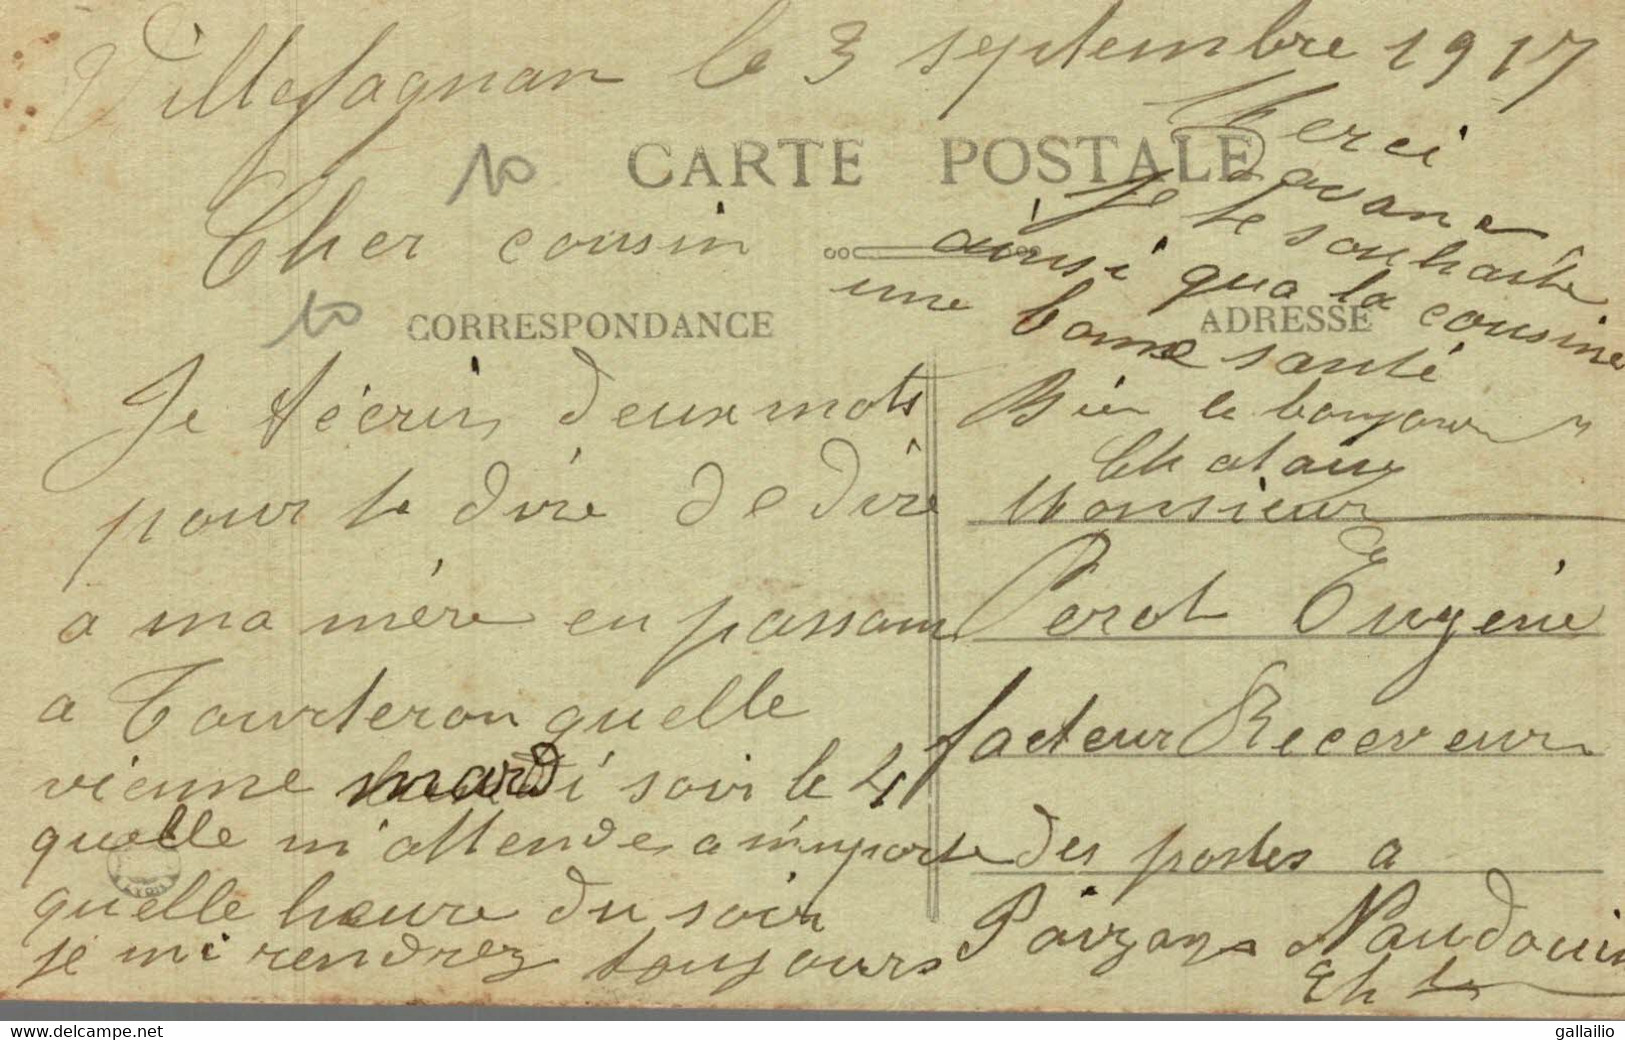 Villefagnan le 3 septembre 1917
10 CARTE POSTALE
Cher cousin
10 CORRESPONDANCE
Je técris deux mots
pour te dire de dire
a ma mére en passant
a Tourteron quelle
vienne mardi soir le 4
quelle m'attende a n'importe
quelle heure du soir
je mi rendrez toujours
Merci
davance
Je te souhaite
ainsi qua la cousine
une bonne santé
ADRESSE
Bien le bonjour
Monsieur
Perot Eugénie
facteur Receveur
des postes a
Paizay Naudouin
Ch te
gallailio
www.delcampe.net